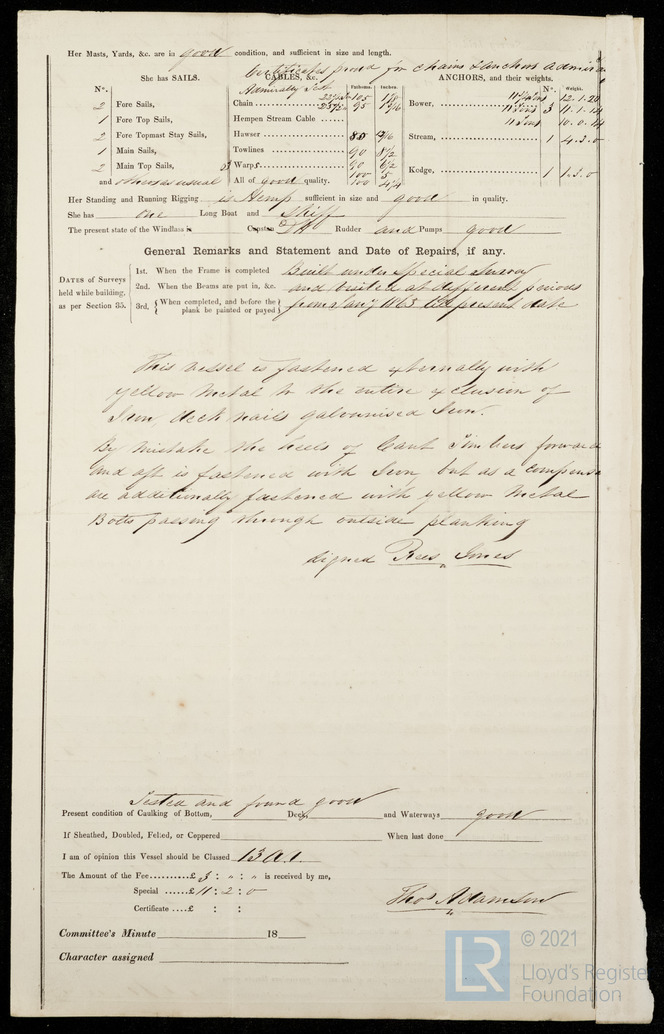 Her Masts, Yards, &c. are in good condition, and sufficient in size and length.
Certificates prov'd for Chains & Anchors Admira
She has SAILS. CABLES, &c. ANCHORS, and their weights.
Admiralty Test
N°. Fathoms. Inches N°. Weight.
2 Fore Sails, Chain 105 Bower, 12.1.20
95 1 9/16 3 11.1.14
1 Fore Top Sails, Hempen Stream Cable 10.0.14
2 Fore Topmast Stay Sails, Hawser 80 Stream, 1 4.3.0
1 Main Sails, Towlines 90 8 1/2
2 Main Top Sails, Warps 90 6 1/2 Kedge, 1 1.3.0
100 5
and others as usual All of good quality. 100 4 1/4
Her Standing and Running Rigging is Hemp sufficient in size and good in quality.
She has one Long Boat and Skiff
The present state of the Windlass is Capstan Rudder and Pumps good
General Remarks and Statement and Date of Repairs, if any.
DATES of Surveys held while building, as per Section 35.
1st. When the Frame is completed Built under Special Survey
2nd. When the Beams are put in, &c. and visited at different periods
3rd. When completed, and before the plank be painted or payed from Jany 1863 to present date
This vessel is fastened externally with
yellow metal to the entire exclusion of
Iron, deck nails galvanised Iron.
By mistake the heels of Cant Timbers forward
and aft is fastened with Iron but as a compensa
are additionally fastened with yellow metal
Bolts passing through outside planking
signed Rees Jones
Tested and found good
Present condition of Caulking of Bottom, Deck, and Waterways good
If Sheathed, Doubled, Felted, or Coppered When last done
I am of opinion this Vessel should be Classed 13 A.1.
The Amount of the Fee..........£ 5 : " : " is received by me,
Special ......£ 11 : 2 : 0
Thos Adamson
Certificate ....£ : :
Committee's Minute 18
Character assigned
LR © 2021
Lloyd's Register
Foundation